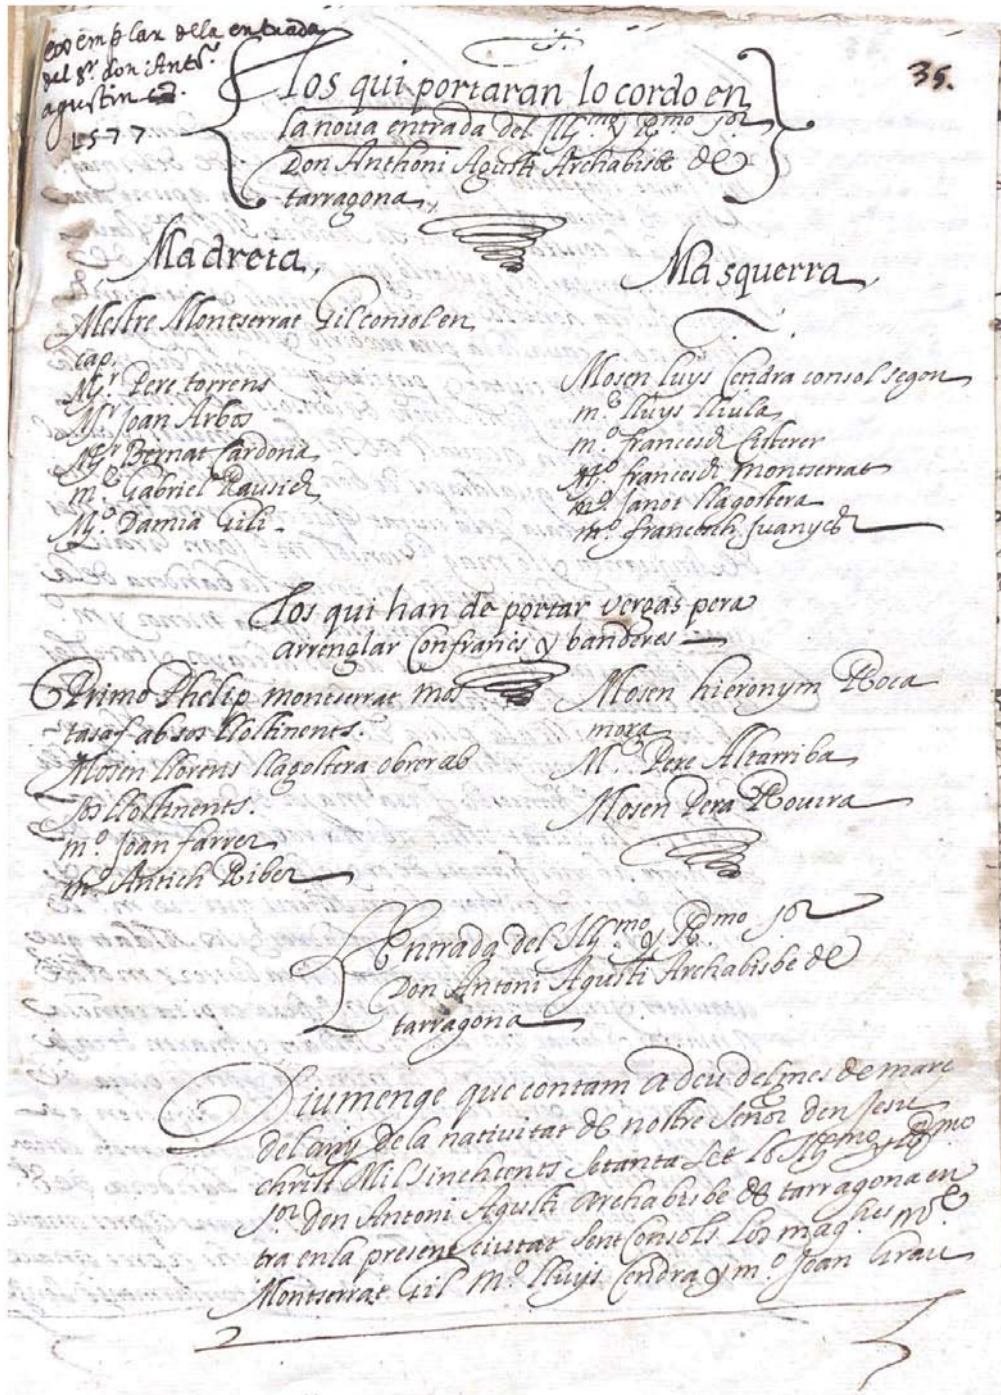 exemplar della entrada
del Sr. don Antº.
agustin
1577
35.
Los qui portaran lo cordo en
la noua entrada del Illmo y Rmo sor
Don Anthoni Agusti Archabisbe de
tarragona,
Ma dreta,
Mestre Montserrat Gil consol en
cap.
Mr. Pere torrens
Mr Joan Arbos
Mr Bernat Cardona
mº Gabriel Rausich
Mº. Damia Gili
Ma squerra,
Mosen luys Cendra consol segon
mº lluys lliula
mº francesch Cisterer
Mº. francesch montserrat
mº. Janot llagostera
mº. francesch Juanych
Los qui han de portar vergas pera
arrenglar Confraries y banderes
Primo Phelip montserrat mos
tasaf ab sos llostinents.
Mosen llorens llagostera obrer ab
sos llostinents.
mº Joan farrer
mº Antich Riber
Mosen hieronym Roca
mora
Mº. Pere Altarriba
Mosen Pera Rouira
Entrada del Illmo y Rdmo sor
Don Antoni Agusti Archabisbe de
tarragona
Diumenge que contam a deu del mes de mars
del any de la natiuitat de nostre Señor den Jesu
christ Mil sinchcents setanta set lo Illmo y Rdmo
sor Don Antoni Agusti Archabisbe de tarragona en
tra en la present ciutat sent Consols los maghcs mº
Montserrat Gil Mº. lluys Cendra y mº. Joan Grau